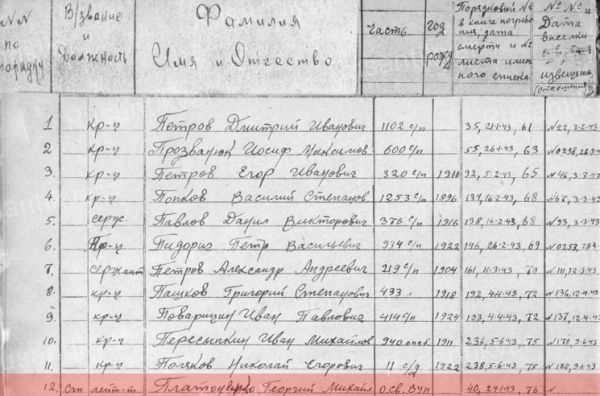 №№ по порядку В/звание и должность Фамилия Имя и Отчество Часть Год рожд Порядковый № в книге погребения, дата смерти и № листа именного списка. №№ и Дата
1 кр-ц Петров Дмитрий Иванович 1102 с/п 35, 21-1-43, 61 №22, 3-2-43
2 кр-ц Иосиф 600 с/п 55, 26-1-43, 63
3 кр-ц Петров Егор Иванович 320 с/п 1918 92, 5-2-43, 65 №46, 3-3-43
4. кр-ц Попков Василий Степанов 1253 с/п 1896 134, 16-2-43, 68
5 серж. Павлов Данил Викторович 376 с/п 1916 138, 16-2-43, 68 №93, 3-3-43
6. кр-ц Пидориз Петр Васильевич 934 с/п 1922 146, 26-2-43, 69
7. сержант Петров Александр Андреевич 219 с/п 1904 161, 11-3-43, 70 №111, 12-3-43
8. кр-ц Пашков Григорий Степанович 433 1918 192, 4-4-43, 72 №136, 12-4-43
9 кр-ц Поварицин Иван Павлович 414 с/п 1924 193, 4-4-43, 72 №137, 12-4-43
10. кр-ц Пересыпкин Иван Михайлов 940 1911 236, 5-6-43, 75
11. кр-ц Николай Егорович 11 с/д 1922 238, 5-6-43, 75
12. лейт-т Георгий Михайл 40, 24-1-43, 76 №